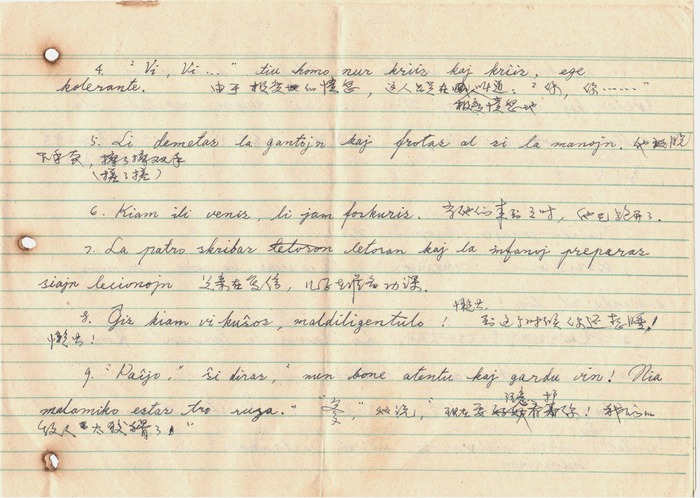 4. "Vi, Vi ..." tiu homo nur kriis kaj kriis, ege
kolerante. 由于极度地的愤怒，这人只是在 叫道："你，你……"
极度愤怒地
5. Li demetas la gantojn kaj frotas al si la manojn. 他 脱
下手套，擦了擦双手
（搓了搓）
6. Kiam ili venis, li jam forkuris. 当他们来到之时，他已跑开了。
7. La patro skribas letoron letoran kaj la infanoj preparas
siajn lecionojn 父亲在写信，儿子在准备功课。
懒虫
8. Ĝis kiam vi kuŝos, maldiligentulo! 到这个时候你还在睡！
懒虫！
9. "Paĉjo," ŝi diras, "nun bone atentu kaj gardu vin! Nia
注意
malamiko estas tro ruza." "爹," 她说，"现在要好好 看 你！我们的
敌人 太狡猾了！"